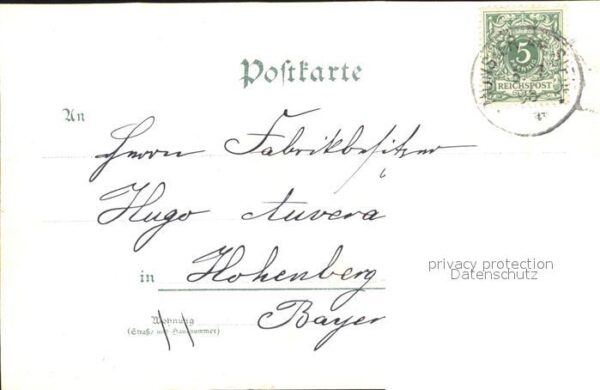 5
REICHSPOST
Postkarte
An
Herrn Fabrikbesitzer
Hugo Auvera
in Hohenberg
Bayer
Wohnung
(Straße und Hausnummer)
privacy protection
Datenschutz